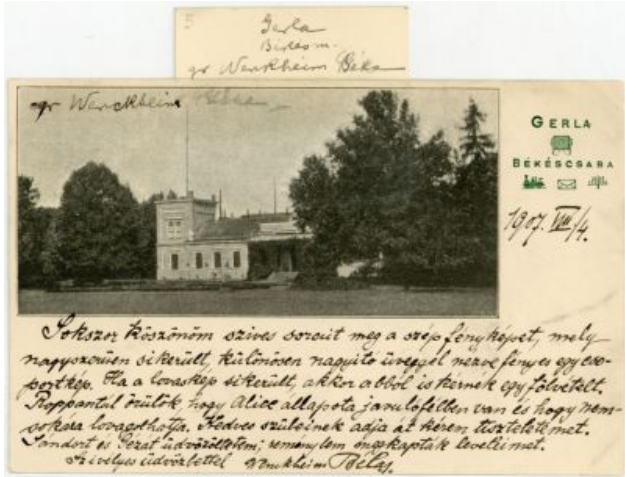 5
Gerla
Békésm.
gr Wenckheim Béla
gr Wenckheim Béla
GERLA
BÉKÉSCSABA
1907. VIII/4.
Sokszor köszönöm szives sorait meg a szép fényképet, mely
nagyszerűen sikerült, különösen nagyitó üveggel nézve fényes egy cso-
portkép. Ha a lovaskép sikerült, akkor abból is kérnek egy fölvételt.
Roppantúl örülök hogy Alice állapota javulófélben van és hogy nem-
sokára lovagolhatja. Kedves szüleinek adja át kérem tiszteletemet.
Sandort és Gézát üdvözöltetem; reménylem megkapták leveleimet.
Szivélyes üdvözlettel Wenckheim Béla.